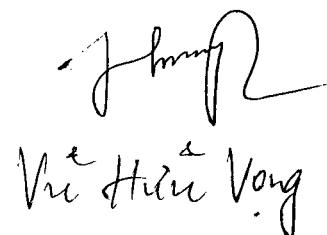 Vũ Hữu Vọng